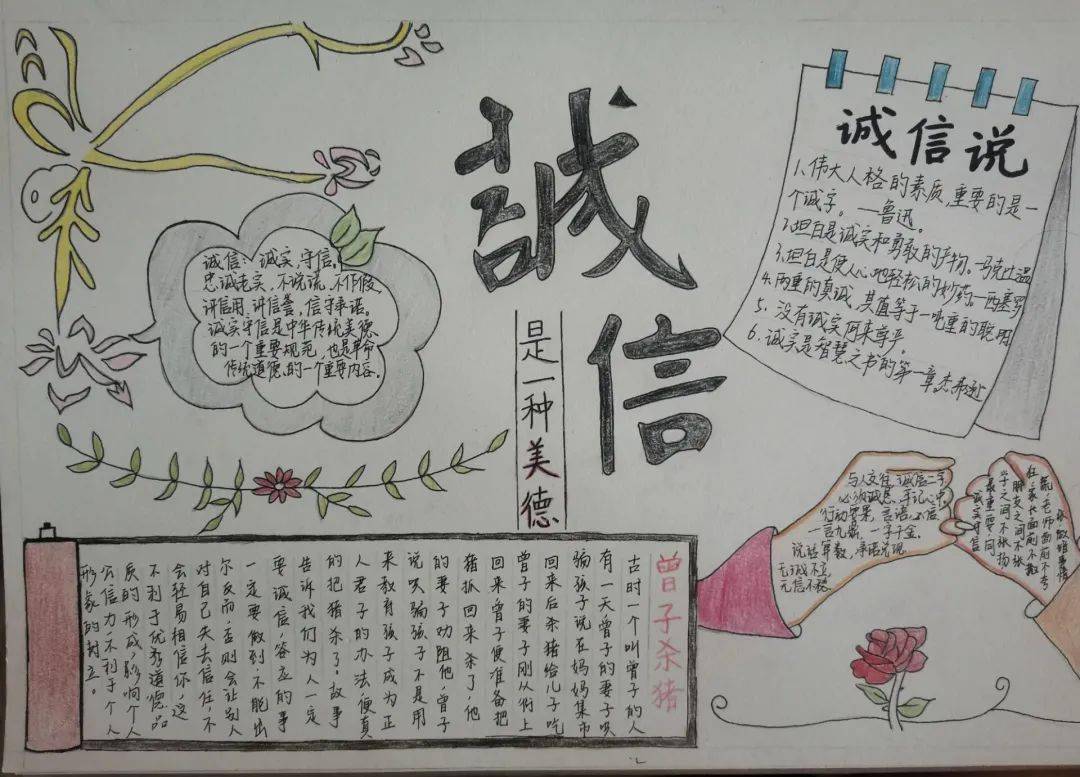 誠信
是一种美德
诚信：诚实，守信。
忠诚老实，不说谎，不作假
讲信用，讲信誉，信守承诺。
诚实守信是中华传统美德
的一个重要规范，也是革命
传统道德的一个重要内容。
诚信说
1.伟大人格的素质,重要的是一
个诚字。—鲁迅。
2.坦白是诚实和勇敢的产物。马克吐温
3.坦白是使人心地轻松的妙药。—西塞罗
4.两重的真诚，其值等于一吨重的聪明
5.没有诚实何来尊严。
6.诚实是智慧之书的第一章。杰弗逊
与人交往,诚信二字
必须诚恳,牢记心中
行动要果,言语必信
一言九鼎,一字千金
说话算数,承诺兑现
无诚不立
无信不稳
老师面前不夸
家长面前不欺
朋友之间不
之间不张扬
最重要一同
诚实守信
曾子杀猪
古时一个叫曾子的人
有一天曾子的妻子哄
骗孩子说在妈妈集市
回来后杀猪给儿子吃
曾子的妻子刚从街上
回来曾子便准备把
猪抓回来杀了,他
的妻子劝阻他,曾子
说哄骗孩子不是用
来教育孩子成为正
人君子的办法,便真
的把猪杀了。故事
告诉我们为人一定
要诚信,答应的事
一定要做到不能出
尔反而,否则会让别人
对自己失去信任,不
会轻易相信你,这
不利于优秀道德品
质的形成,影响个人
公信力,不利于个人
形象的树立。